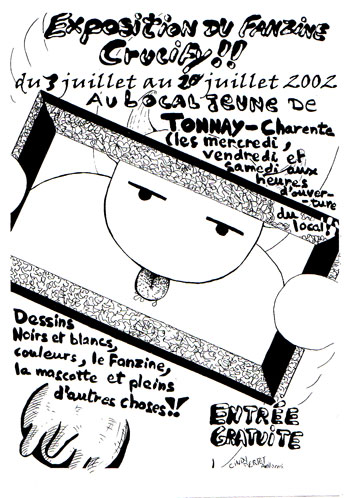 Exposition du Fanzine
Crucify!!
du 3 juillet au 20 juillet 2002
Au Local Jeune de
Tonnay-Charente
(les mercredi,
vendredi et
samedi aux
heures
d'ouver-
ture
du
local)
Dessins
Noirs et blancs,
couleurs, le Fanzine,
la mascotte et pleins
d'autres choses!!
ENTRÉE
GRATUITE